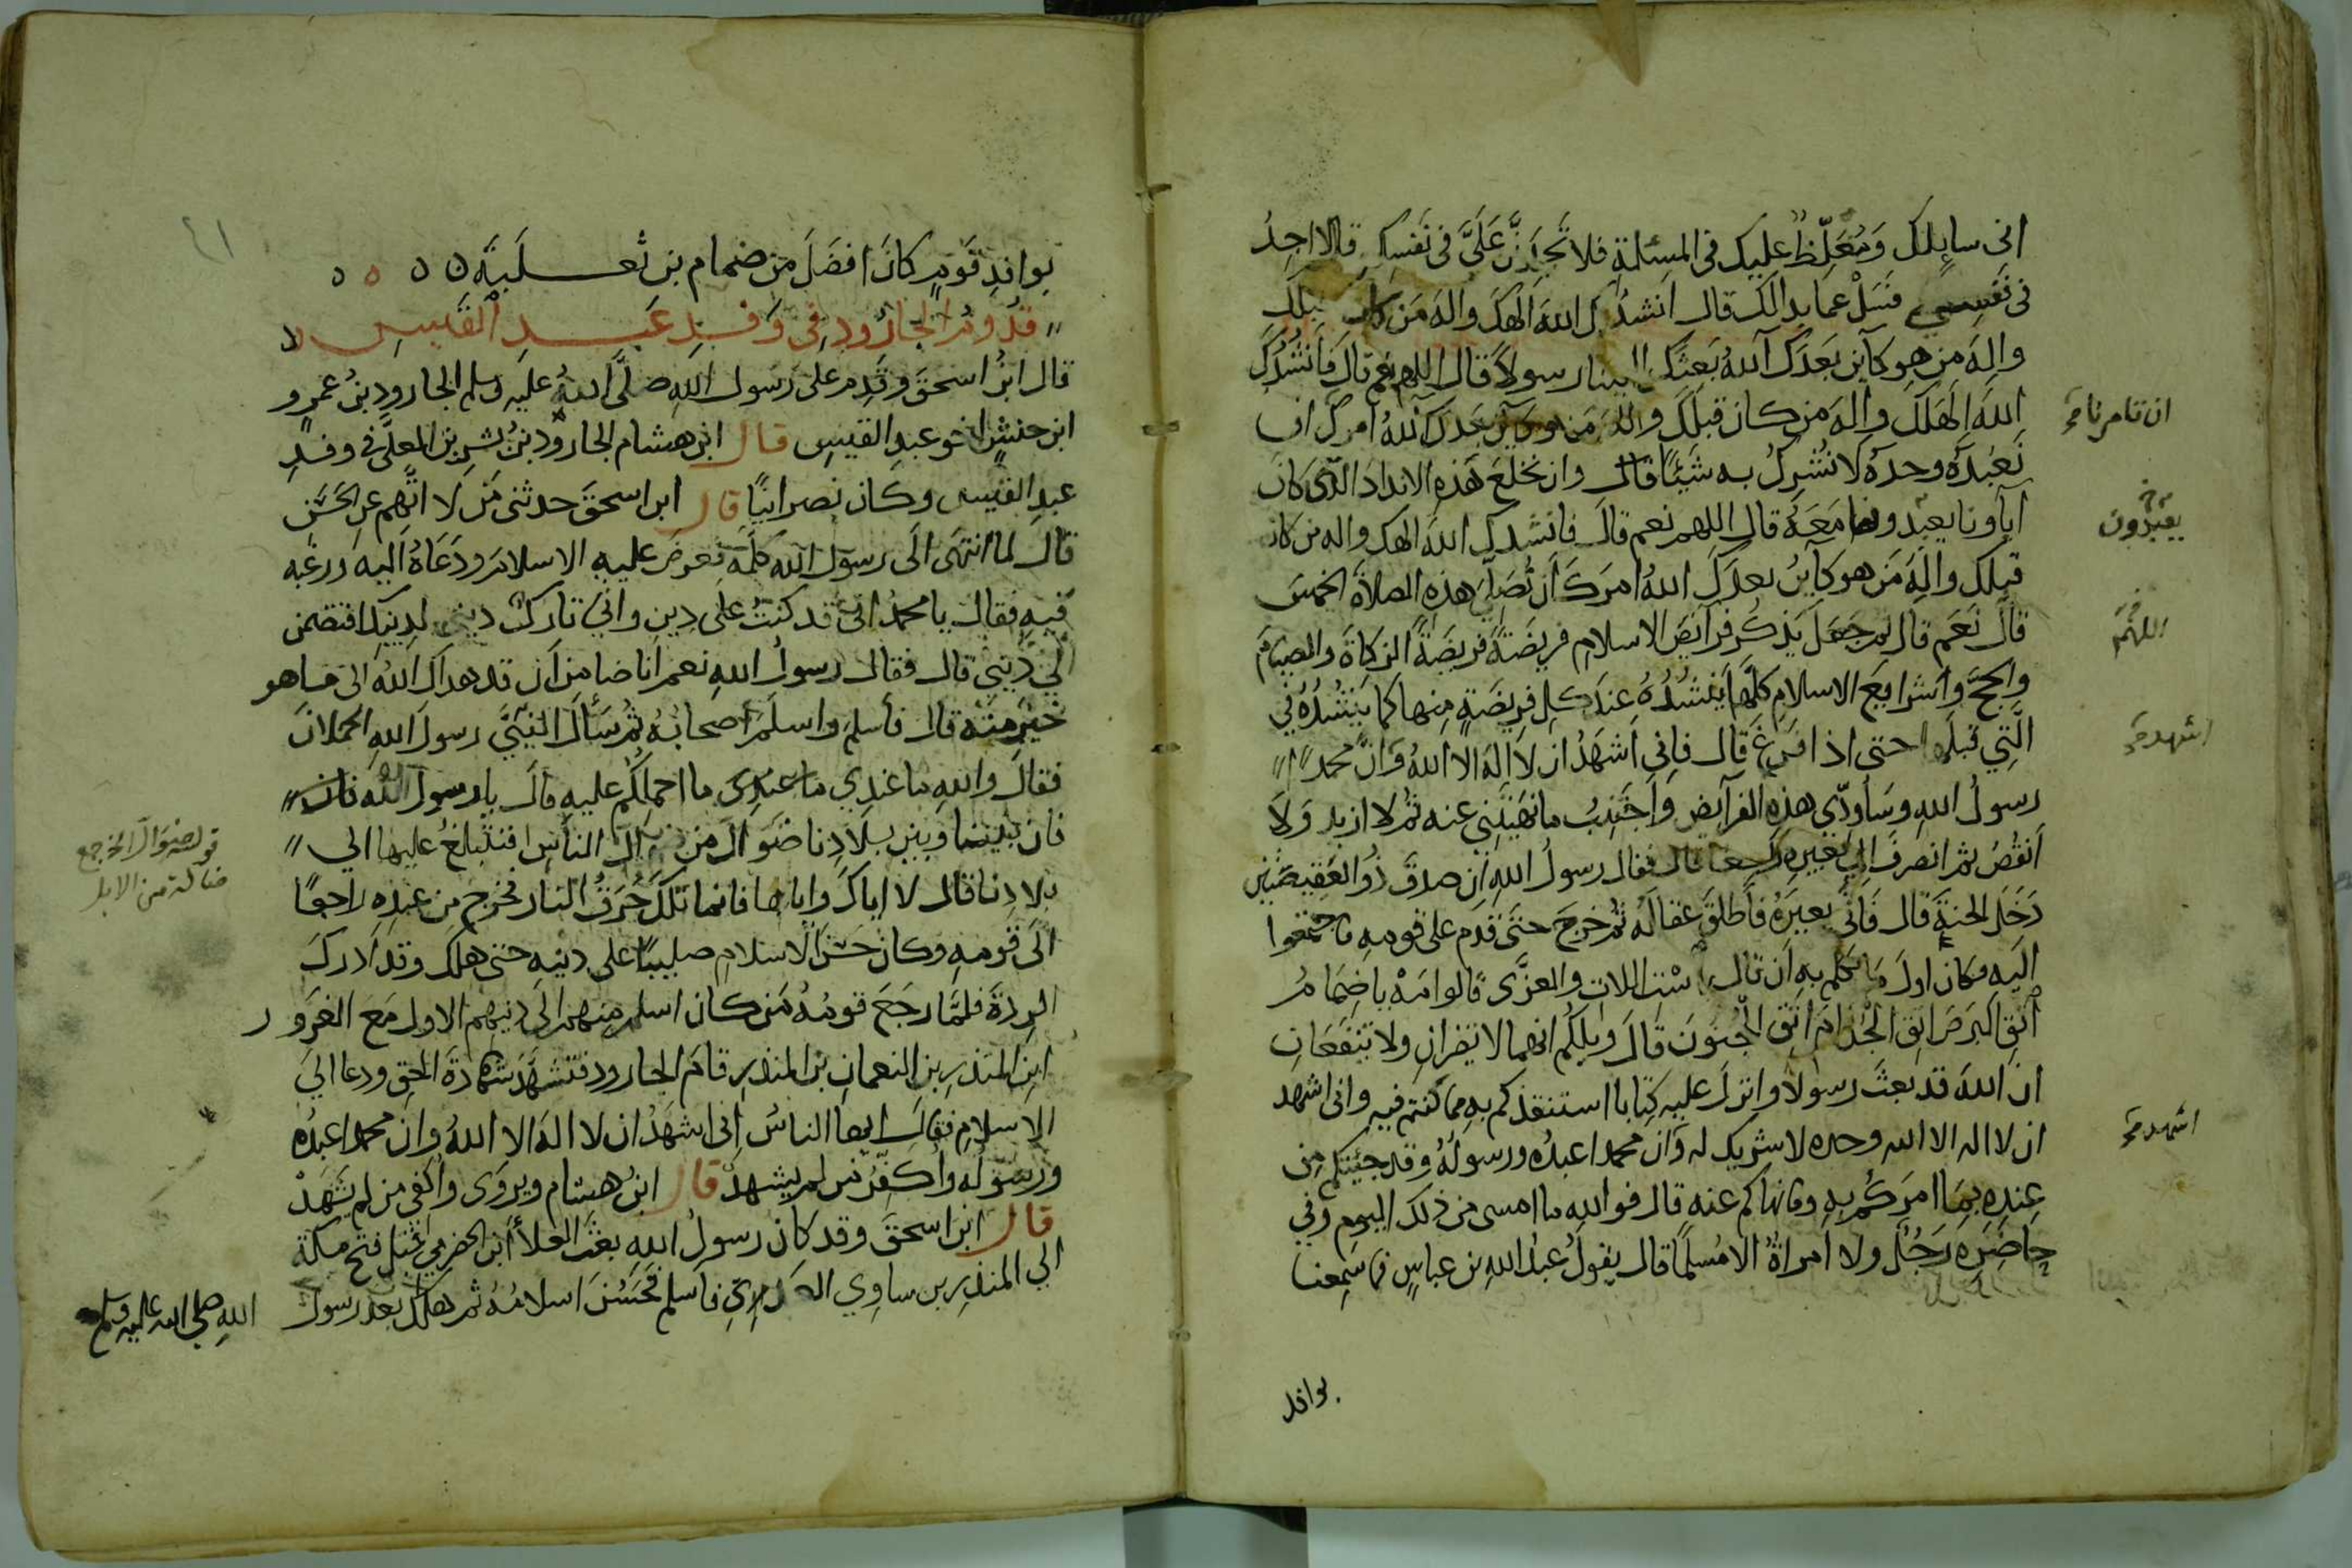 انى سايلك وَمُغَلِّظٌ عليك فى المسئلة فلا تَجِدَنَّ عَلَىَّ فى نَفسِك قال لا اجِدُ
فى نَفسِى فَسَلْ عما بدالك قال اَنشدُك اللهَ الهَكَ والهَ مَن كان قبلك
واِلهَ مَن هو كآين بَعدَك آللهُ بَعثَك الينا رسولاً قال اللهم نعم قال فَاَنشُدُكَ
اللهَ الهَكَ واِلهَ من كان قبلك واله مَن هو كآين بَعدَك آللهُ امرك ان
نَعبُدَهُ وحدهُ لا نُشرِكُ به شَيئًا قال وان نخلَعَ هَذِهِ الاندادَ التى كانَ
اٰبآونا يعبدونها مَعَهُ قال اللهم نعم قال فانشدك اللهَ الهك واله من كان
قبلك والهَ مَن هو كآينٌ بعدك آللهُ امرَكَ اَن نُصَلِّىَ هذِهِ الصلاةَ الخمسَ
قال نَعَم قال ثم جعَلَ يَذكُر فرآئضَ الاسلام فريضَةً فريضَةً الزكاةَ والصيامَ
والحجَّ وشرايعَ الاسلامِ كلَّها يَنشُدُهُ عندَ كل فريضَةٍ منها كما يَنشُدُهُ فى
الَّتِى قبلَها حتى اذا فرغَ قال فانى اَشهَدُ ان لا اله الا الله وَانَّ محمدًا
رسولُ اللهِ وسَأُودِّى هذه الفرآيض وَاَجتَنِبُ ما نهَيتَنِى عنه ثم لا ازيد وَلا
اَنقُصُ ثم انصرفَ الى بعيره راجعا قال فقال رسولُ اللهِ ان صدقَ ذُو العَقيصَتَين
دَخَلَ الجنةَ قال فَاَتَى بعيرَهُ فَاَطلقَ عقالَهُ ثم خرجَ حتى قدِم على قومهِ فاجتمعوا
اليهِ فكان اولَ ما تكلم به اَن قال بئست اللات والعزَّى قالوا مَهْ يا ضِمَامُ
اتقِ البرَصَ اتقِ الجُذامَ اتقِ الجُنونَ قالَ ويلكم انهما لا يضران ولا ينفَعَانِ
ان اللهَ قد بعثَ رسولا وانزلَ عليه كِتابا استنقذكم به مما كنتم فيه وانى اشهد
ان لا اله الا الله وحده لا شريك له وَانَّ محمدا عبدُه ورسولُهُ وقد جئتكم مِن
عِندِه بِمَا امرَكُم به وما نهاكم عنه قال فوالله ما امسى من ذلك اليوم وفى
حاضِرِهِ رَجُلٌ ولا امراةٌ الا مُسلِمًا قال يقولُ عبدُ اللهِ بن عباسٍ فما سَمِعنا
بوافد
ان تامرنا
يعبدون
اللهم
اشهد
اشهد
٤١
بوافدِ قَومٍ كانَ افضَلَ مَن ضِمام بن ثَعلَبَةَ
قدُومُ الجارُودِ فِى وَفدِ عَبدِ القَيسِ
قال ابنُ اسحقَ وقَدِم على رَسُول اللهِ صلَّى اللهُ عليه وسلم الجارودُ بنُ عمرٍو
ابن حنشٍ اخو عبدِ القيسِ قال ابن هشام الجارودُ بنُ بشرِ بن المعلَّى فى وفدِ
عبدِ القيس وكان نصرانيًا قال ابن اسحقَ حدثنى مَن لا اتَّهِم عنِ الحَسَنِ
قال لما انتهَى الَى رسولِ الله كلَّمَهُ فعرضَ عليهِ الاسلامَ ودَعَاهُ اليه ورغبه
فيهِ فقال يا محمدُ انى قد كنتُ على دِينٍ وانى تاركٌ دينى لدينِك افتضمن
لى دِينِى قال فقال رسولُ اللهِ نعم انا ضامن اَن قد هداك اللهُ الى ما هو
خَيرٌ منه قال فاسلَمَ واسلَمَ اصحابُهُ ثم سَألَ النبِىَّ رسولَ اللهِ الحُملانَ
فقالَ واللهِ ما عندى ما احملكُم عليه قال يا رسول الله فان
فان بيننا وبين بلادِنا ضَوَالَّ من ضوالِّ الناسِ افنتبلغُ عليها الى
بلادِنا قال لا اياكَ واياها فانما تلكَ حَرَقُ النار فخرجَ من عندِه راجعًا
الَى قومهِ وكان حَسَنَ الاسلامِ صليبًا على دينِه حتى هلك وقد ادركَ
الردةَ فلمَّا رجَعَ قومُهُ مَن كان اسلم منهم الَى دينِهِم الاولِ مَعَ الغَرور
ابنِ المنذرِ بن النعمانِ بن المنذِرِ قام الجارود فتشهَّدَ شَهادةَ الحقِ ودعا الى
الاسلامِ فقال ايها الناسُ انى اشهَدُ ان لا الهَ الا اللهُ وان محمدا عبدُه
ورسولُه واُكفِّرُ مَن لم يشهدْ قال ابنُ هشام ويروَى واكفى من لم يشهَدْ
قال ابن اسحقَ وقد كان رسولُ اللهِ بعثَ العلأَ ابن الحضرمى قبل فتح مكة
الى المنذِرِ بن ساوِى العبدى فاسلم فحَسُنَ اسلامُهُ ثم هلك بعد رسول
اللهِ صلى الله عليه وسلم
قوله ضوال الخ جمع
ضالة من الابل